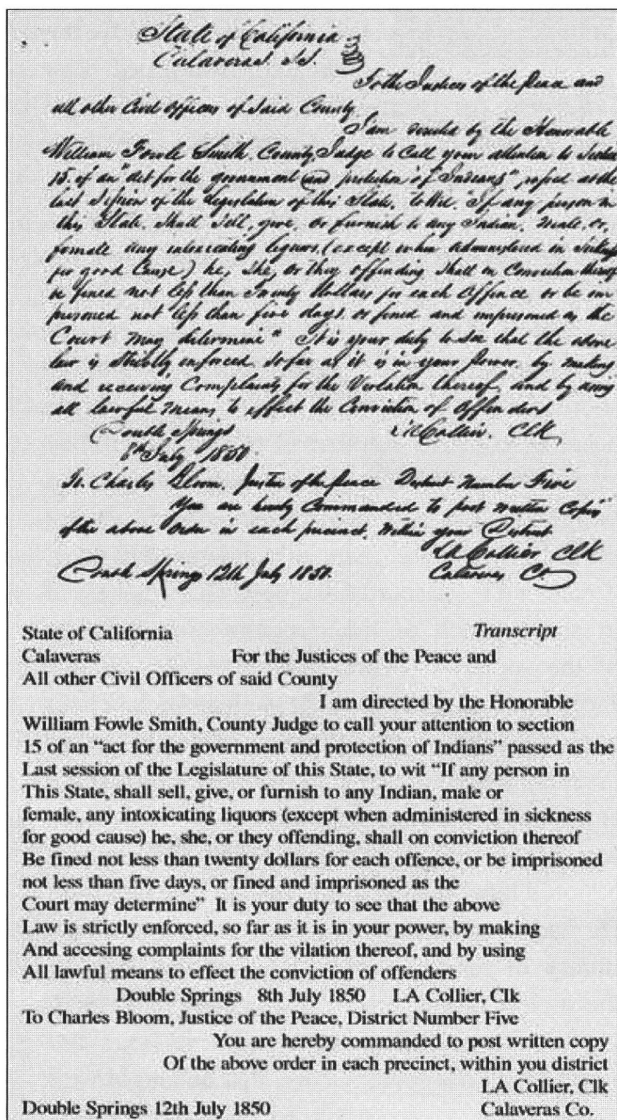 State of California
Calaveras. Ss.
To the Justices of the Peace and
all other Civil Officers of Said County
I am directed by the Honorable
William Fowle Smith, County Judge to Call your attention to Section
15 of an "Act for the government and protection of Indians", passed at the
last Session of the Legislature of this State, to Wit. "If any person in
this State, Shall Sell, give, or furnish to any Indian, male, or,
female any intoxicating liquors, (except when administered in Sickness
for good Cause) he, She, or they offending Shall on Conviction thereof
be fined not less than Twenty Dollars for each Offence or be im
prisoned not less than five days, or fined and imprisoned as the
Court may determine" It is your duty to see that the above
law is strictly enforced, so far as it is in your power, by making
and receiving Complaints for the Violation thereof, and by using
all lawful means to effect the Conviction of Offenders
Double Springs LA Collier. Clk
8th July 1850.
To. Charles Bloom. Justice of the Peace District Number Five
You are hereby Commanded to post written Copies
of the above order in each precinct, within your District
LA Collier Clk
Double Springs 12th July 1850. Calaveras Co.
State of California Transcript
Calaveras For the Justices of the Peace and
All other Civil Officers of said County
I am directed by the Honorable
William Fowle Smith, County Judge to call your attention to section
15 of an “act for the government and protection of Indians” passed as the
Last session of the Legislature of this State, to wit “If any person in
This State, shall sell, give, or furnish to any Indian, male or
female, any intoxicating liquors (except when administered in sickness
for good cause) he, she, or they offending, shall on conviction thereof
Be fined not less than twenty dollars for each offence, or be imprisoned
not less than five days, or fined and imprisoned as the
Court may determine” It is your duty to see that the above
Law is strictly enforced, so far as it is in your power, by making
And accesing complaints for the vilation thereof, and by using
All lawful means to effect the conviction of offenders
Double Springs 8th July 1850 LA Collier, Clk
To Charles Bloom, Justice of the Peace, District Number Five
You are hereby commanded to post written copy
Of the above order in each precinct, within you district
LA Collier, Clk
Double Springs 12th July 1850 Calaveras Co.